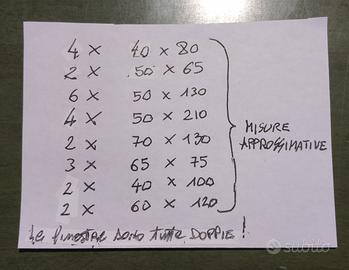 4 × 40 × 80
2 × 50 × 65
6 × 50 × 130
4 × 50 × 210
2 × 70 × 130
3 × 65 × 75
2 × 40 × 100
2 × 60 × 120
MISURE
APPROSSIMATIVE
Le finestre sono tutte doppie!
subito